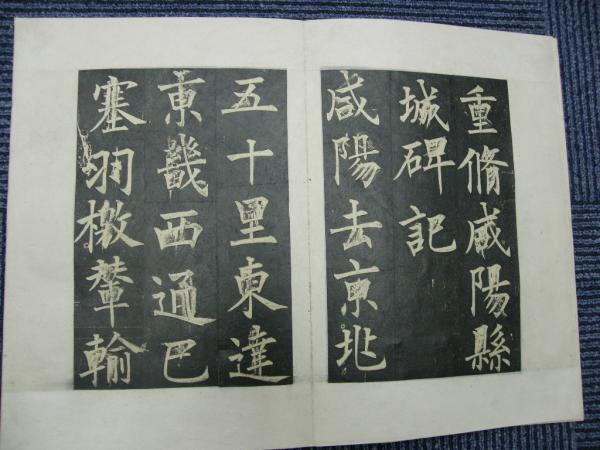 重脩咸陽縣
城碑記
咸陽去京兆
五十里東達
京畿西通巴
塞羽檄輦輸